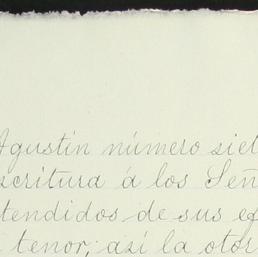 Agustín número siet
scritura á los Señ
tendidos de sus ef
tenor; así la otor